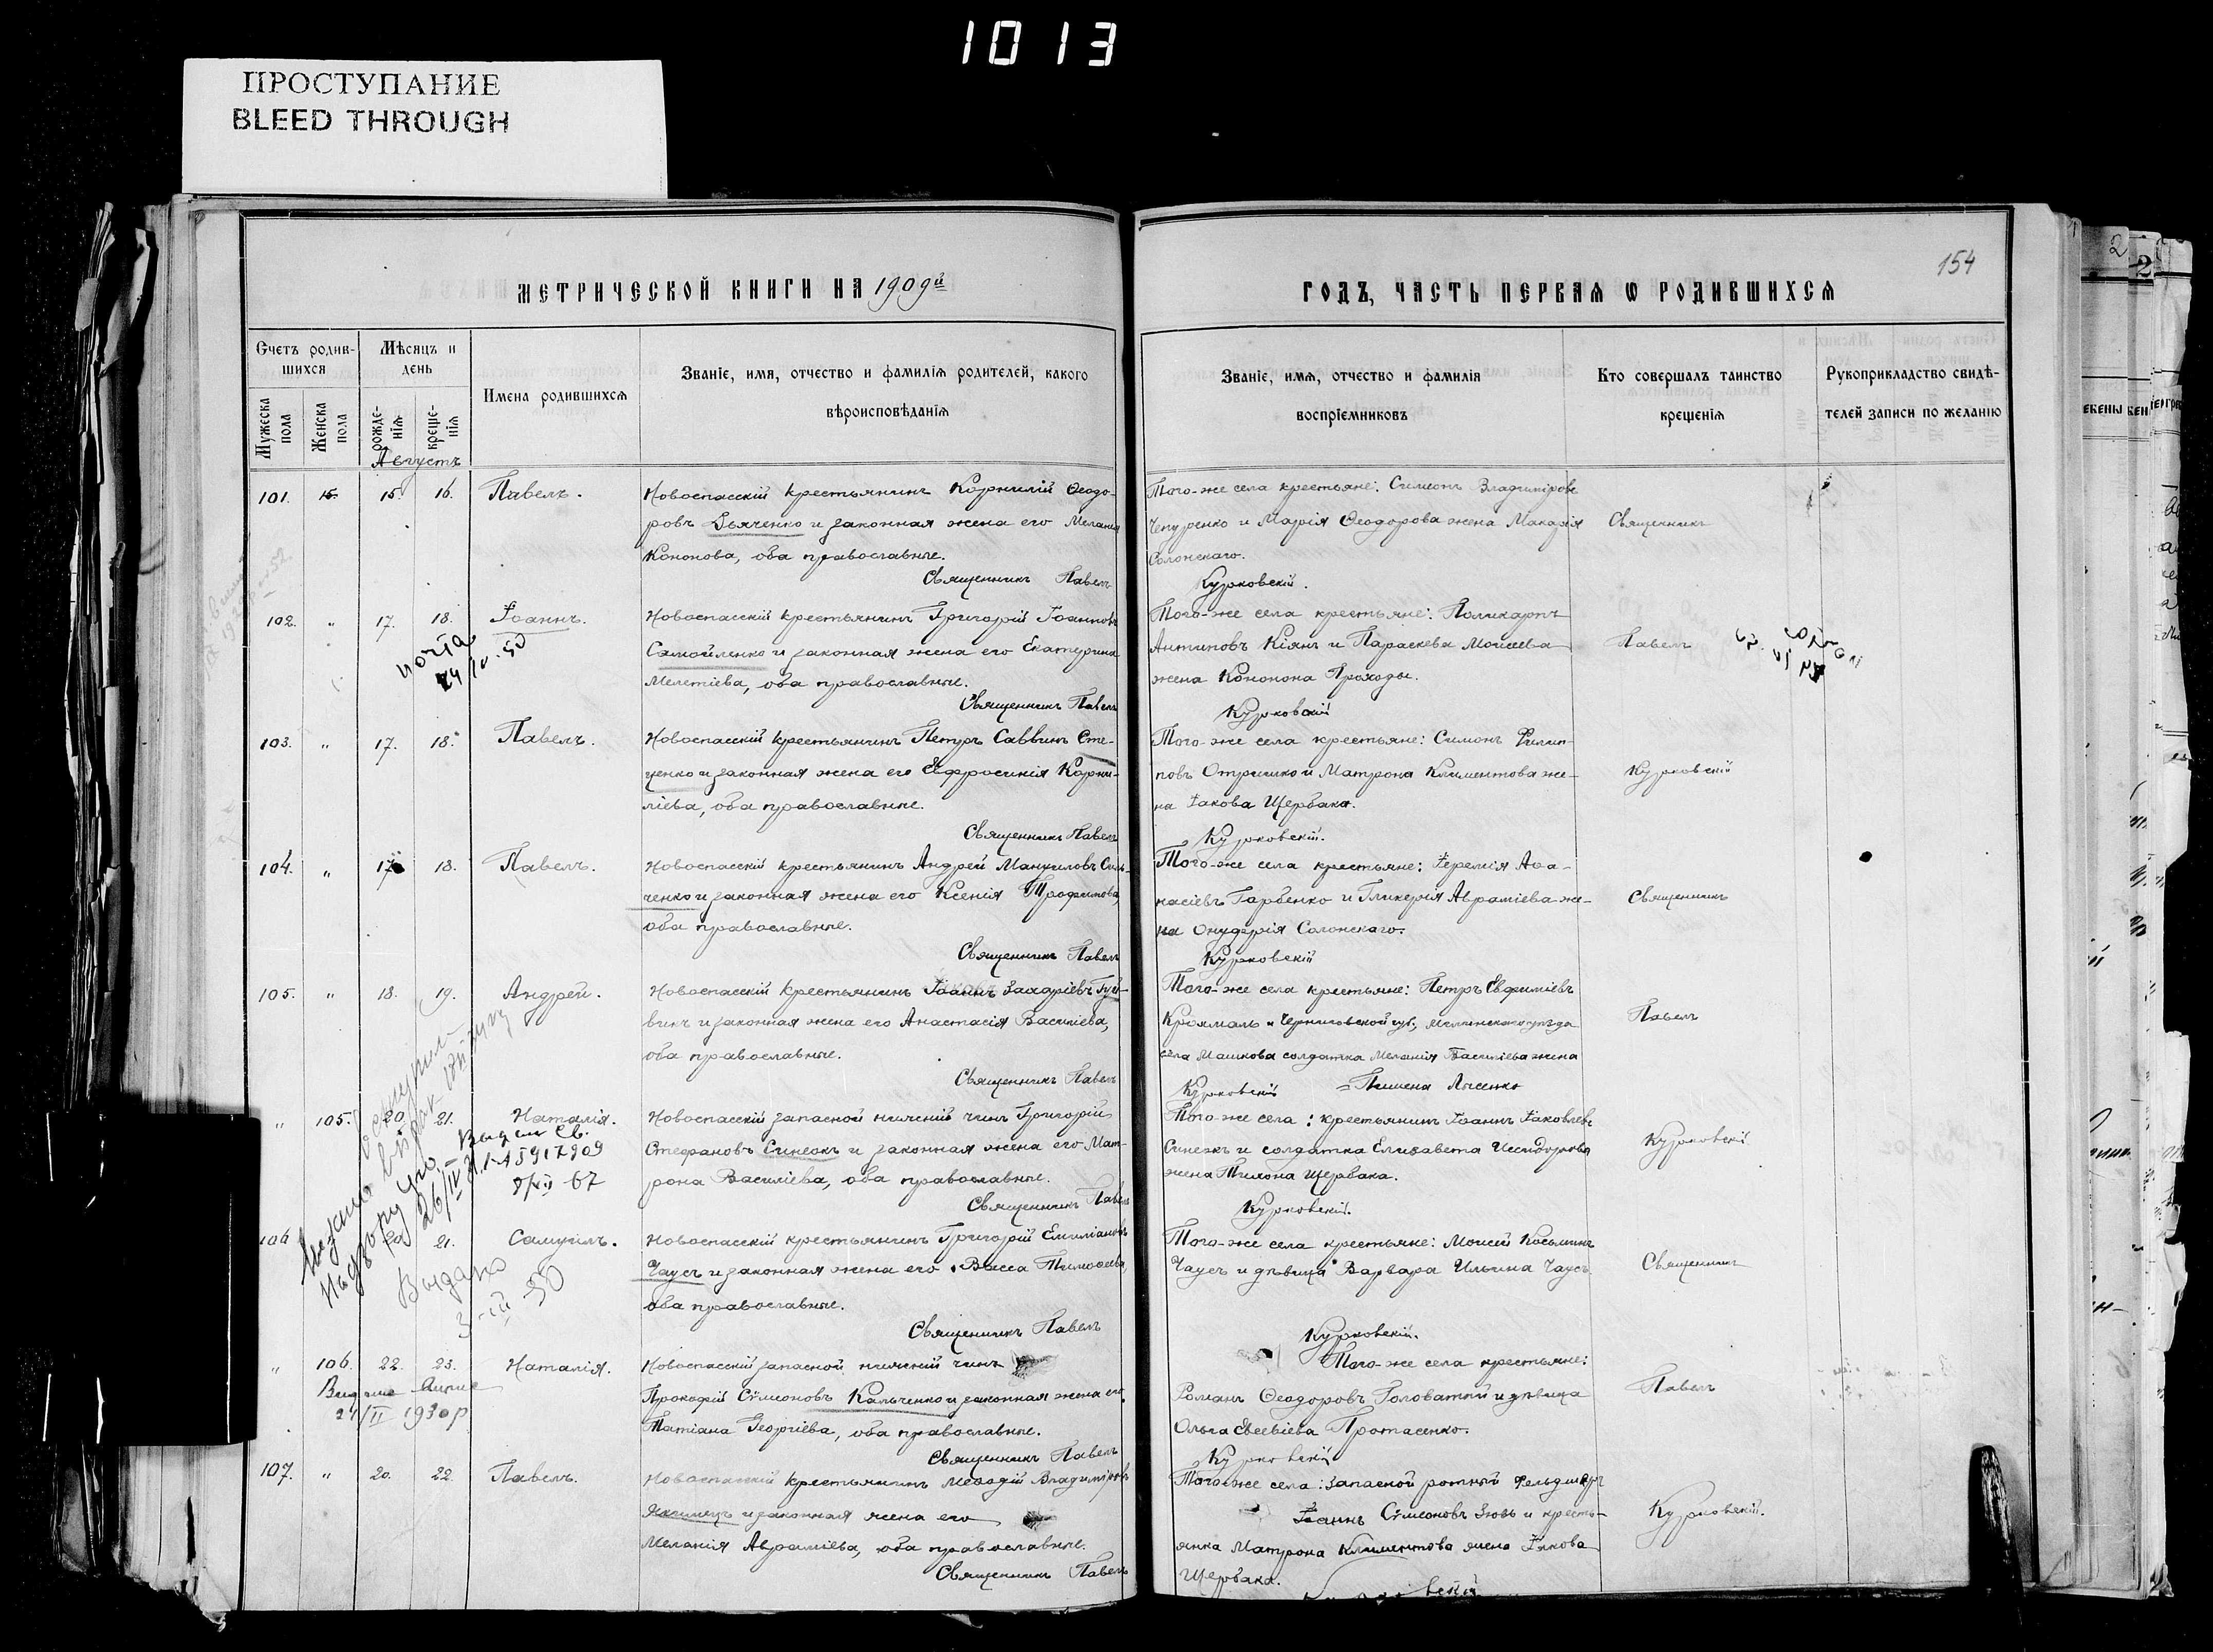 1013
ПРОСТУПАНИЕ
BLEED THROUGH
154
МЕТРИЧЕСКОЙ КНИГИ НА 1909й
ГОДЪ, ЧАСТЬ ПЕРВАЯ Ѡ РОДИВШИХСЯ
Счетъ родив-
шихся
Мѣсяцъ и
день
Мужеска
пола
Женска
пола
рожде-
нія
креще-
нія
Имена родившихся
Званіе, имя, отчество и фамилія родителей, какого
вѣроисповѣданія
Званіе, имя, отчество и фамилія
воспріемниковъ
Кто совершалъ таинство
крещенія
Рукоприкладство свидѣ-
телей записи по желанію
Августъ
101. 15. 16. Павелъ.
Новоспасскій крестьянинъ Корнилій Ѳеодо-
ровъ Дьяченко и законная жена его Меланія
Кононова, оба православные.
Священникъ Павелъ
Того-же села крестьяне: Симеонъ Владиміровъ
Чепуренко и Марія Ѳеодорова жена Макарія
Солонскаго.
Курковскій.
Священникъ
102. " 17. 18. Іоаннъ.
Новоспасскій крестьянинъ Григорій Іоанновъ
Самойленко и законная жена его Екатерина
Мелетіева, оба православные.
Священникъ Павелъ
Того-же села крестьяне: Поликарпъ
Антиповъ Кіянъ и Параскева Моисеева
жена Конона Проходы.
Курковскій
Павелъ
103. " 17. 18. Павелъ.
Новоспасскій крестьянинъ Петръ Саввинъ Сте-
ценко и законная жена его Евфросинія Корни-
ліева, оба православные.
Священникъ Павелъ
Того-же села крестьяне: Симонъ Филип-
повъ Отришко и Матрона Климентова же-
на Іакова Щербака.
Курковскій.
Курковскій
104. " 17 18. Павелъ.
Новоспасскій крестьянинъ Андрей Мануиловъ
ченко и законная жена его Ксенія Трофимова,
оба православные.
Священникъ Павелъ
Того-же села крестьяне: Іеремія Аѳа-
насіевъ Гарбенко и Гликерія Авраміева же-
на Онуфрія Солонскаго.
Курковскій
Священникъ
105. " 18. 19. Андрей.
Новоспасскій крестьянинъ Іоаннъ Захаріевъ
винъ и законная жена его Анастасія Василіева,
оба православные.
Священникъ Павелъ
Того-же села крестьяне: Петръ Евфиміевъ
Крохмаль и Черниговской губ., уѣзда
села Машкова солдатка Меланія Василіева жена
Курковскій =Пимена Лисенко
Павелъ
" 105. 20. 21. Наталія.
Новоспасскій запасной нижній чинъ Григорій
Стефановъ Синеокъ и законная жена его Мат-
рона Василіева, оба православные.
Священникъ Павелъ
Того-же села: крестьянинъ Іоаннъ Іаковлевъ
Синеокъ и солдатка Елисавета Исидорова
жена Тихона Щербака.
Курковскій.
Курковскій
106 20 21. Самуилъ.
Новоспасскій крестьянинъ Григорій Емиліановъ
Чаусъ и законная жена его Васса Тимоѳеева,
оба православные.
Священникъ Павелъ
Того-же села крестьяне: Моисей Косьминъ
Чаусъ и дѣвица Варвара Ильина Чаусъ.
Курковскій.
Священникъ
Выдано
3-III-50
" 106. 22. 23. Наталія.
24/II 1930р
Новоспасскій запасной нижній чинъ
Прокофій Сѵмеоновъ Кальченко и законная жена его
Татіана Георгіева, оба православные.
Священникъ Павелъ
Того-же села крестьяне:
Романъ Ѳеодоровъ Головатый и дѣвица
Ольга Евсевіева Протасенко.
Курковскій
Павелъ
107. " 20. 22. Павелъ.
Новоспасскій крестьянинъ Меѳодій Владиміровъ
Якимецъ и законная жена его
Меланія Авраміева, оба православные.
Священникъ Павелъ
Того-же села: запасной ротный фельдшеръ
Іоаннъ Сѵмеоновъ Зовъ и кресть-
янка Матрона Климентова жена Іакова
Щербака.
Курковскій.